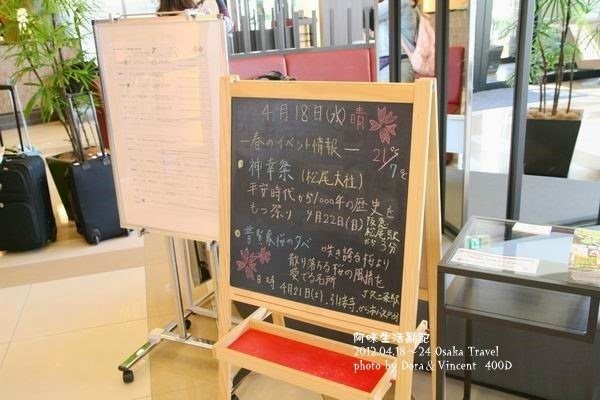 4月18日(水) 晴
21℃/7℃
—春のイベント情報—
神幸祭 (松尾大社)
平安時代から1000年の歴史を
もつ祭り 4月22日(日)
阪急
松尾駅
から3分
普賢象桜の夕べ
咲き誇る桜より
散り落ちる桜の風情を
愛でる名所
日時 4月21日(土) 引接寺
JR二条駅
から市バス
阿咪生活亂記
2012.04.18~24 Osaka Travel
photo by Dora & Vincent 400D